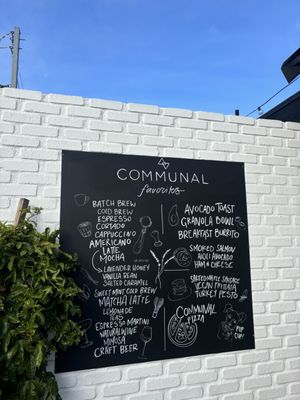 COMMUNAL
favorites
BATCH BREW
COLD BREW
ESPRESSO
CORTADO
CAPPUCCINO
AMERICANO
LATTE
MOCHA
LAVENDER HONEY
VANILLA BEAN
SALTED CARAMEL
SWEET MINT COLD BREW
MATCHA LATTE
LEMONADE
TEAS
ESPRESSO MARTINI
NATURAL WINE
MIMOSA
CRAFT BEER
AVOCADO TOAST
GRANOLA BOWL
BREAKFAST BURRITO
SMOKED SALMON
AIOLI AVOCADO
HAM & CHEESE
VEGAN TOMATO
TURKEY PESTO
COMMUNAL
PIZZA
PUP
CUP